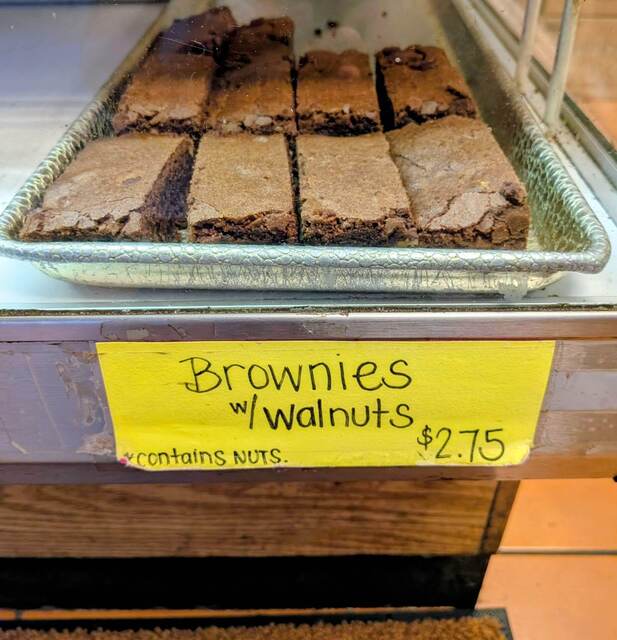 Brownies
w/walnuts
$2.75
*contains NUTS.